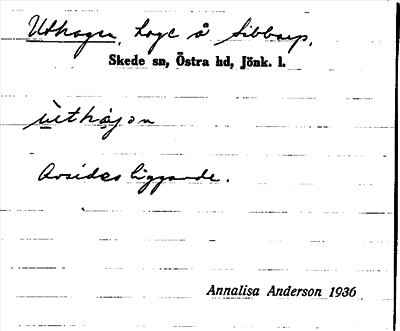 Uthagen, Lagl å Sibbarp,
Skede sn, Östra hd, Jönk. l.
ùthàgən
Avsides liggande.
Annalisa Anderson 1936